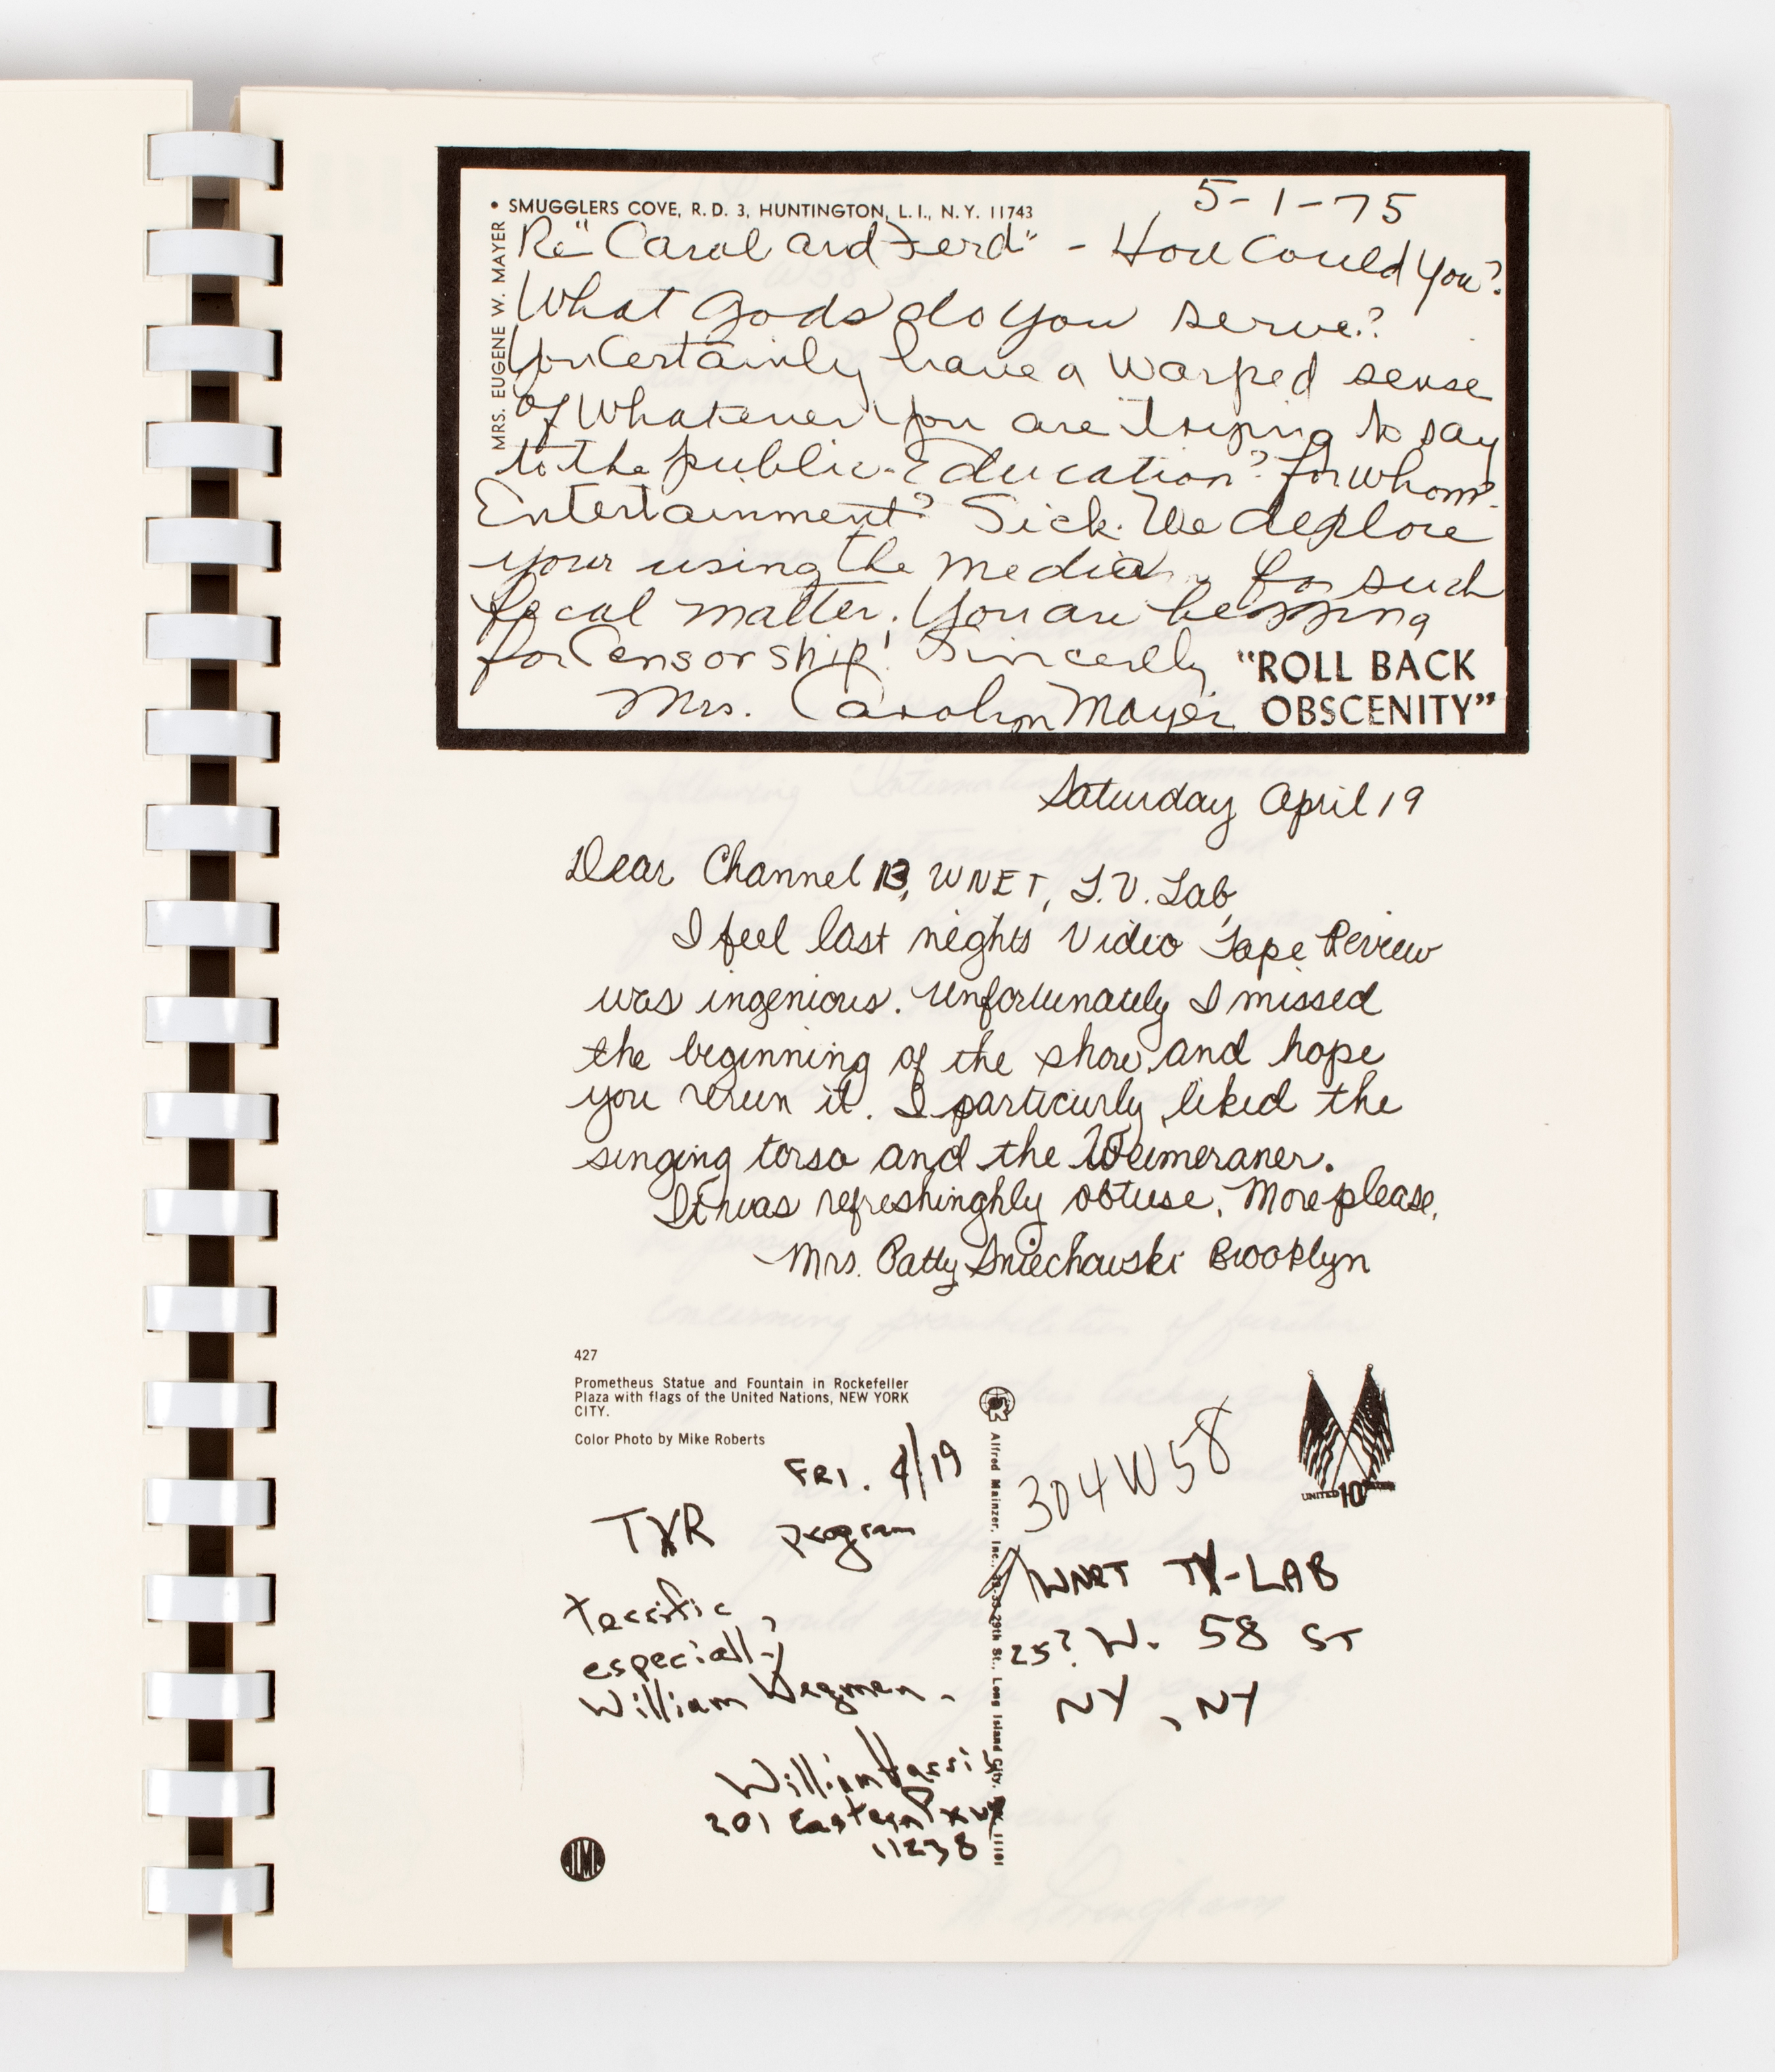 5-1-75
• SMUGGLERS COVE, R.D. 3, HUNTINGTON, L.I., N.Y. 11743
MRS. EUGENE W. MAYER
Re "Carol and Ferd" - How Could You?
What Gods do you serve?
You Certainly have a warped sense
of whatever you are trying to say
to the public - Education? for whom?
Entertainment? Sick. We deplore
your using the media for such
fecal matter. You are begging
for Censorship! Sincerely
Mrs. Carolyn Mayer
"ROLL BACK
OBSCENITY"
Saturday April 19
Dear Channel 13, WNET, T.V. Lab,
I feel last nights Video Tape Review
was ingenious. Unfortunately I missed
the beginning of the show and hope
you rerun it. I particurly liked the
singing torso and the Weimeraner.
It was refreshinghly obtuse. More please.
Mrs. Patty Sniechowski Brooklyn
427
Prometheus Statue and Fountain in Rockefeller
Plaza with flags of the United Nations, NEW YORK
CITY.
Color Photo by Mike Roberts
FRI. 4/19
VTR program
terrific,
especially
William Wegman.
William
201 Eastern Pkwy
11238
Alfred Mainzer, Inc., 29th St., Long Island City, 11101
304 W 58
UNITED 10
WNET TV-LAB
25? W. 58 ST
NY, NY